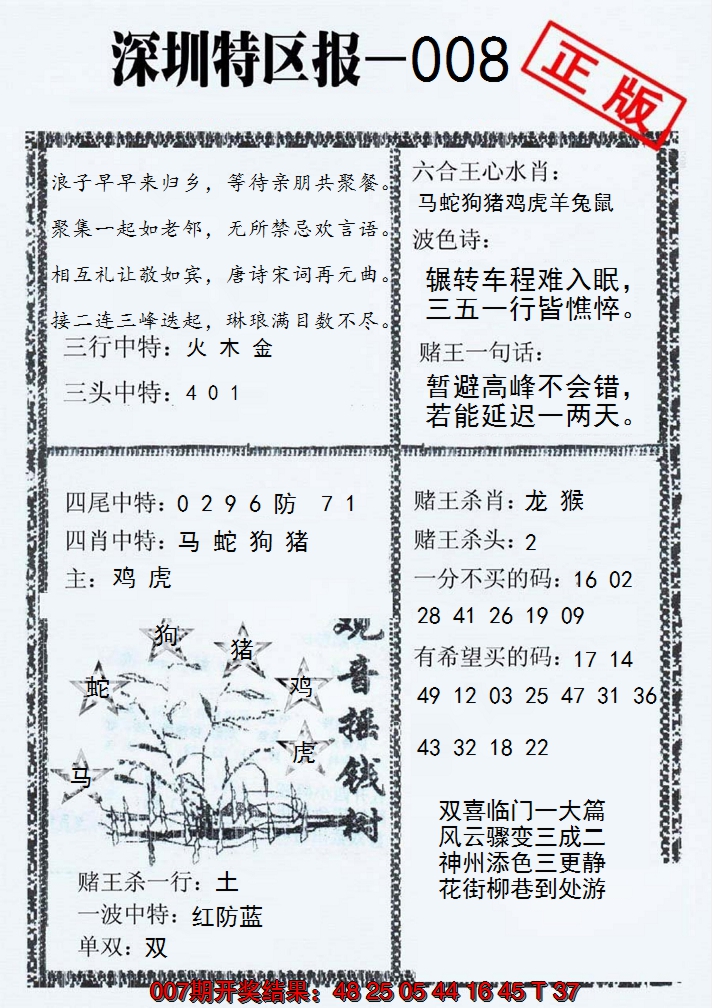 深圳特区报—008
正版
浪子早早来归乡，等待亲朋共聚餐。
聚集一起如老邻，无所禁忌欢言语。
相互礼让敬如宾，唐诗宋词再元曲。
接二连三峰迭起，琳琅满目数不尽。
三行中特：火 木 金
三头中特：4 0 1
六合王心水肖：
马蛇狗猪鸡虎羊兔鼠
波色诗：
辗转车程难入眠，
三五一行皆憔悴。
赌王一句话：
暂避高峰不会错，
若能延迟一两天。
四尾中特：0 2 9 6 防 7 1
四肖中特：马 蛇 狗 猪
主：鸡 虎
狗
猪
蛇
鸡
虎
马
观音摇钱树
赌王杀一行：土
一波中特：红防蓝
单双：双
赌王杀肖：龙 猴
赌王杀头：2
一分不买的码：16 02
28 41 26 19 09
有希望买的码：17 14
49 12 03 25 47 31 36
43 32 18 22
双喜临门一大篇
风云骤变三成二
神州添色三更静
花街柳巷到处游
007期开奖结果：48 25 05 44 16 45 T 37